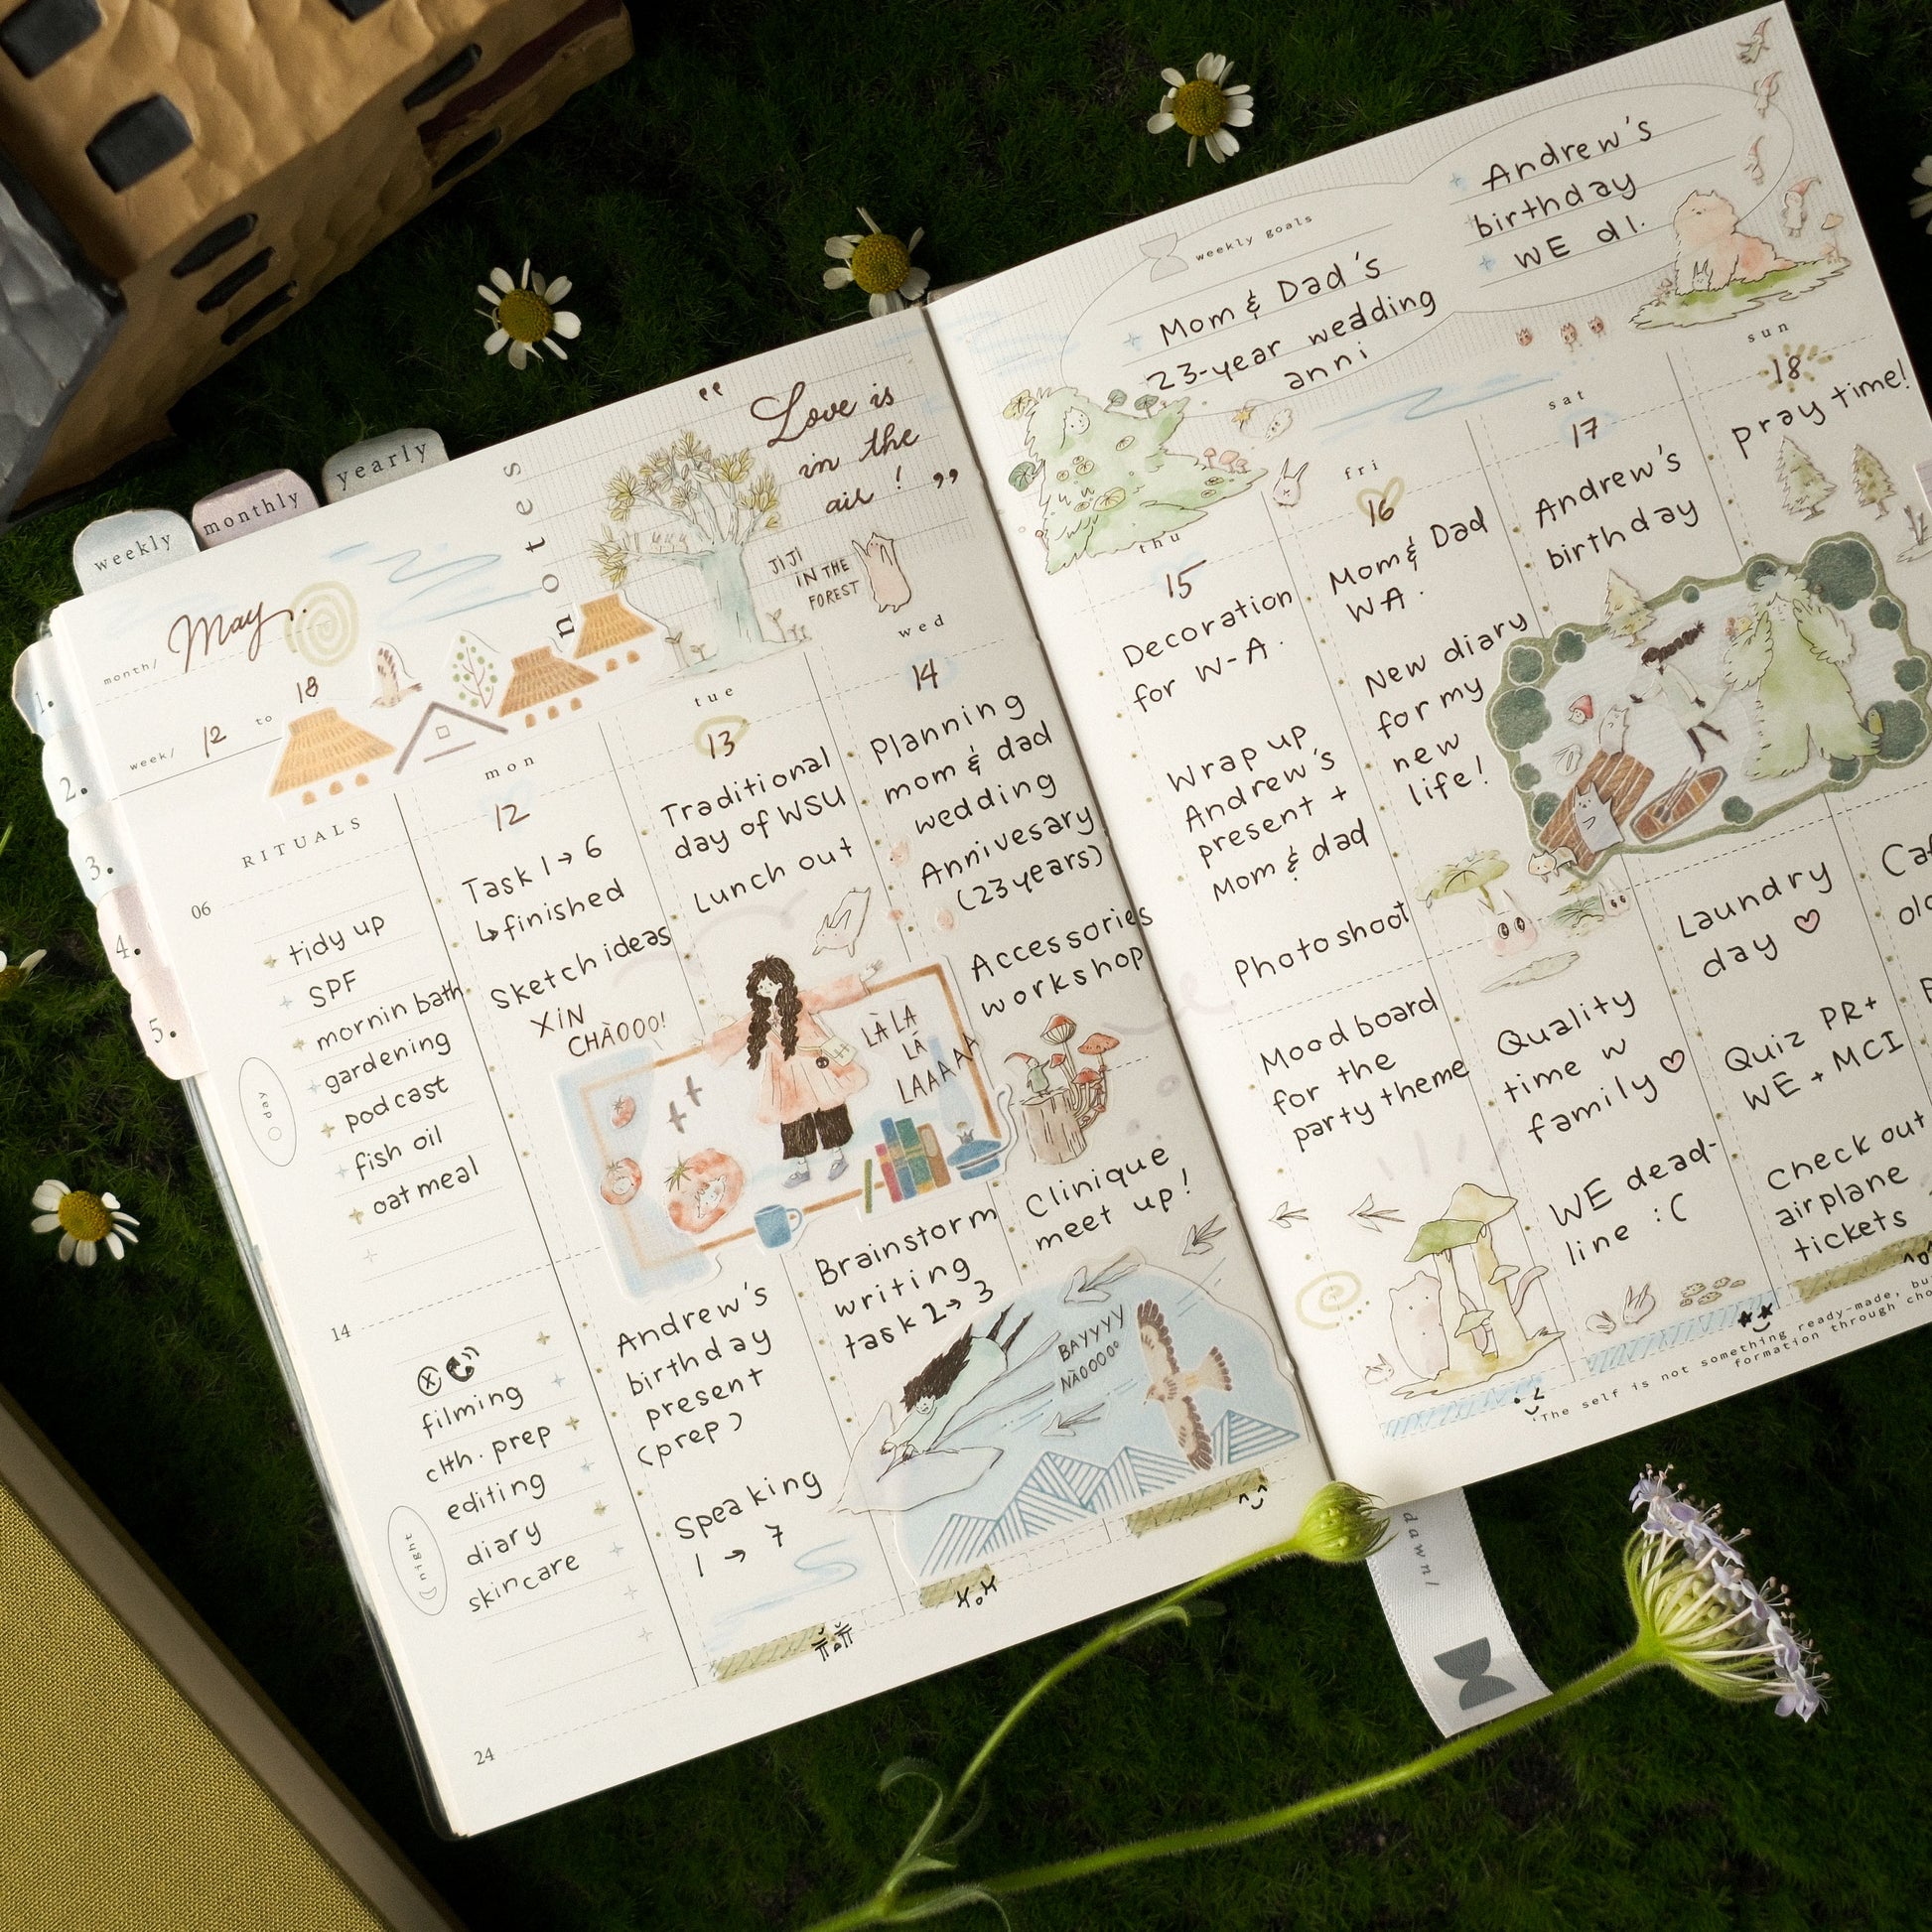 weekly
monthly
yearly
1.
2.
3.
4.
5.
month/ May.
week/ 12 to 18
notes
“ Love is
in the
air! ”
JIJI
IN THE
FOREST
RITUALS
06
tidy up
SPF
mornin bath
gardening
podcast
fish oil
oatmeal
day
14
filming
clth. prep
editing
diary
skincare
night
24
mon
12
Task 1→6
↳finished
Sketch ideas
XIN
CHÀOOO!
Andrew's
birthday
present
(prep)
Speaking
1 → 7
tue
13
Traditional
day of WSU
Lunch out
LÀ LA
LÁ
LAAAAA
Brainstorm
writing
task 2→3
wed
14
Planning
mom & dad
wedding
Annivesary
(23years)
Accessories
workshop
Clinique
meet up!
BAYYYY
NÀOOOO
weekly goals
Mom & Dad's
23-year wedding
anni
Andrew's
birthday
WE d1.
thu
15
Decoration
for W-A.
Wrap up
Andrew's
present +
Mom & dad
Photoshoot
Mood board
for the
party theme
fri
16
Mom & Dad
WA.
New diary
for my
new
life!
Quality
time w
family ♡
WE dead-
line :(
sat
17
Andrew's
birthday
Laundry
day ♡
Quiz PR+
WE + MCI
Check out
airplane
tickets
sun
18
pray time!
"The self is not something ready-made,
formation through
dawn/